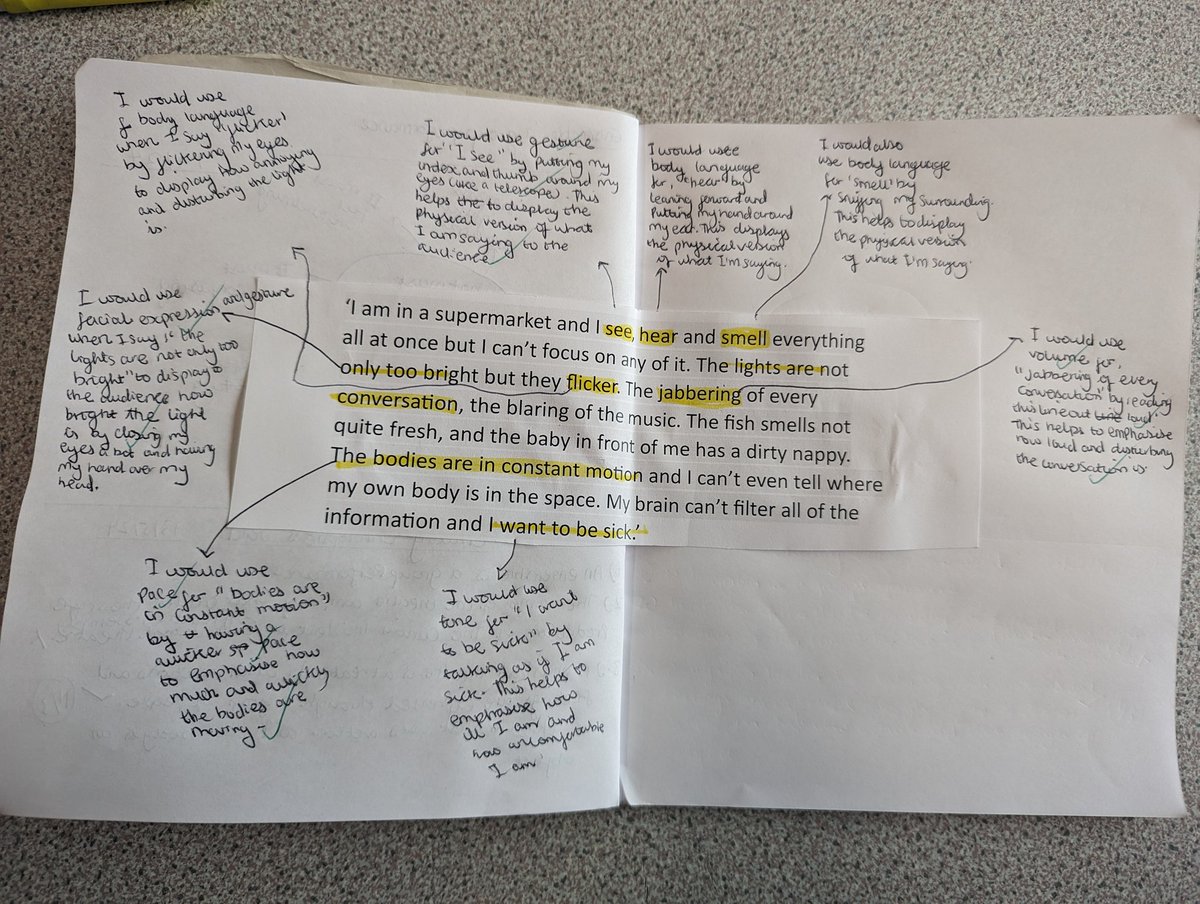 I would use
body language
when I say 'flicker'
by flickering my eyes
to display how annoying
and disturbing the light
is.
I would use gesture
for "I see" by putting my
index and thumb around my
eyes like a telescope. This
helps to display the
physical version of what
I am saying to the
audience
I would use
body language
for, "hear" by
leaning forward and
putting my hand around
my ear. This displays
the physical version
of what I'm saying.
I would also
use body language
for 'smell' by
sniffing my surrounding.
This helps to display
the physical version
of what I'm saying.
I would use
facial expression and gesture
when I say "the
lights are not only too
bright" to display
the audience how
bright the light
is by closing my
eyes a bit and having
my hand over my
head.
'I am in a supermarket and I see, hear and smell everything
all at once but I can't focus on any of it. The lights are not
only too bright but they flicker. The jabbering of every
conversation, the blaring of the music. The fish smells not
quite fresh, and the baby in front of me has a dirty nappy.
The bodies are in constant motion and I can't even tell where
my own body is in the space. My brain can't filter all of the
information and I want to be sick.'
I would use
volume for,
"jabbering of every
conversation" by reading
this line out loud.
This helps to emphasise
how loud and disturbing
the conversation is.
I would use
pace for "bodies are
in constant motion"
by having a
quicker pace
to emphasise how
much and quickly
the bodies are
moving.
I would use
tone for "I want
to be sick" by
talking as if I am
sick. This helps to
emphasise how
ill I am and
how uncomfortable
I am